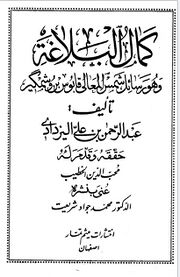 كمال البلاغة
وهو رسائل شمس المعالي قابوس بن وشمگير
تأليف:
عبد الرحمن بن علي اليزدادي
حققه وقدم له
محب الدين الخطيب
عني بنشره
الدكتور محمد جواد شريعت
انتشارات ميثم تمار
اصفهان